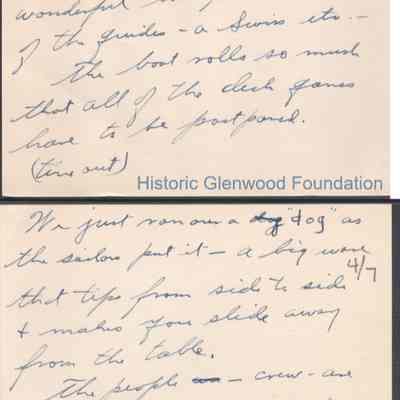 wonderful
of the guides - a Swiss etc. -
The boat rolls so much
that all of the deck games
have to be postponed.
(time out)
Historic Glenwood Foundation
We just ran over a dog "dog" as
the sailors put it - a big wave
4/7
that tips from side to side
+ makes you slide away
from the table.
The people - crew - are